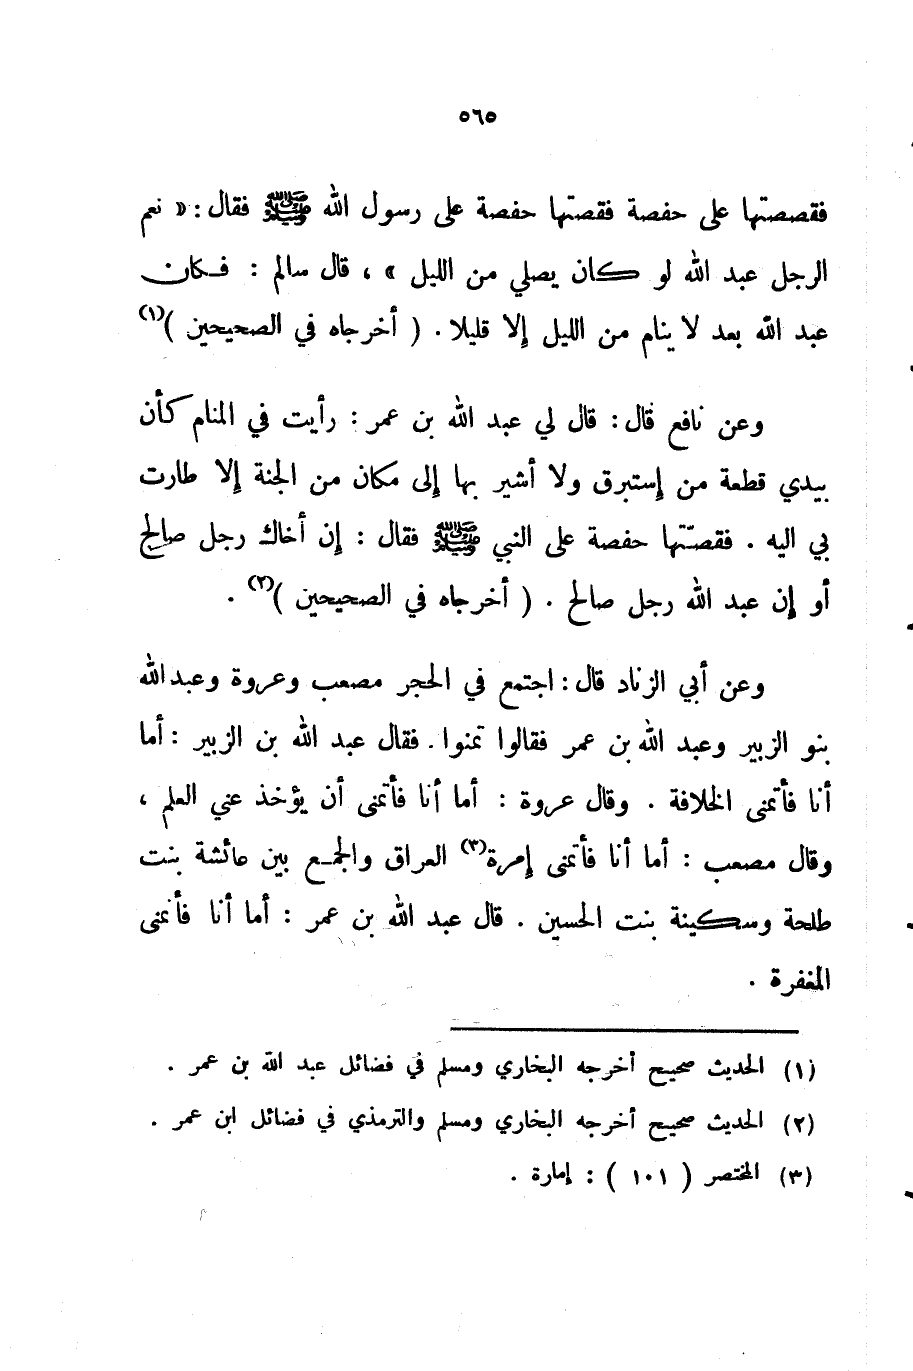 ٥٦٥
فقصصتها على حفصة فقصتها حفصة على رسول الله ﷺ فقال : « نعم
الرجل عبد الله لو كان يصلي من الليل » ، قال سالم : فكان
عبد الله بعد لا ينام من الليل إلا قليلا . ( أخرجاه في الصحيحين )(١)
وعن نافع قال : قال لي عبد الله بن عمر : رأيت في المنام كأن
بيدي قطعة من إستبرق ولا أشير بها إلى مكان من الجنة إلا طارت
بي اليه . فقصّتها حفصة على النبي ﷺ فقال : إن أخاك رجل صالح
أو إن عبد الله رجل صالح . ( أخرجاه في الصحيحين )(٢) .
وعن أبي الزناد قال : اجتمع في الحجر مصعب وعروة وعبد الله
بنو الزبير وعبد الله بن عمر فقالوا تمنوا . فقال عبد الله بن الزبير : أما
أنا فأتمنى الخلافة . وقال عروة : أما أنا فأتمنى أن يؤخذ عني العلم ،
وقال مصعب : أما أنا فأتمنى إمرة(٣) العراق والجمع بين عائشة بنت
طلحة وسكينة بنت الحسين . قال عبد الله بن عمر : أما أنا فأتمنى
المغفرة .
(١) الحديث صحيح أخرجه البخاري ومسلم في فضائل عبد الله بن عمر .
(٢) الحديث صحيح أخرجه البخاري ومسلم والترمذي في فضائل ابن عمر .
(٣) المختصر ( ١٠١ ) : إمارة .